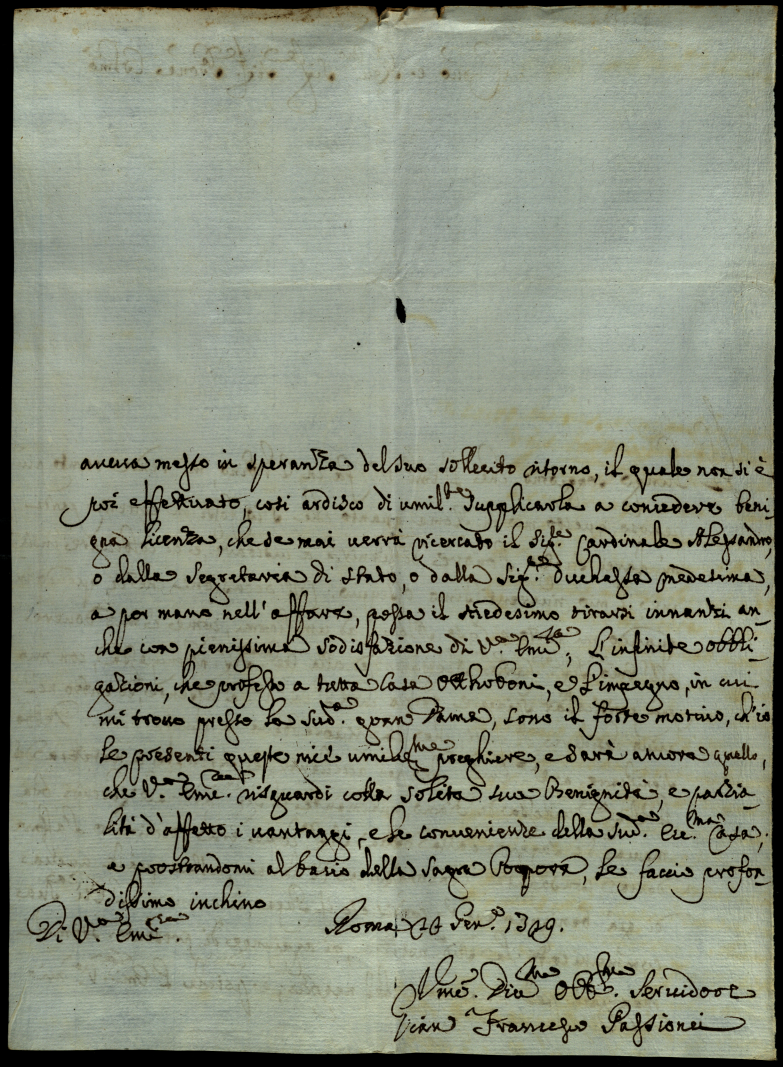 aveva messo in speranza del suo sollecito ritorno, il quale non si è
poi effettuato, così ardisco di umil.te supplicarla a concedere beni-
gna licenza, che se mai verrà ricercato il Sig.re Cardinale Alessandro,
o dalla Segretaria di Stato, o dalla Sig.ra Duchessa medesima,
a por mano nell'affare, possa il medesimo tirarsi innanzi an-
che con pienissima sodisfazione di V.ra Em.za; L'infinite obbli-
gazioni, che professo a tutta Casa Otthoboni, e l'impegno, in cui
mi trovo presso la sud.a gran Dama, sono il forte motivo, ch'io
le presenti queste mie umiliss.me preghiere, e sarà ancora quello,
che V.ra Em.za risguardi colla solita sua Benignità, e parzia-
lità d'affetto i vantaggi, e le convenienze della sud.a Ecc.ma Casa;
e prostrandomi al bacio della Sagra Porpora, le faccio profon-
dissimo inchino
Di V.ra Em.za
Roma Gen.o
Um.o Div.mo Obb.mo Servidore
Gian Francesco Passionei